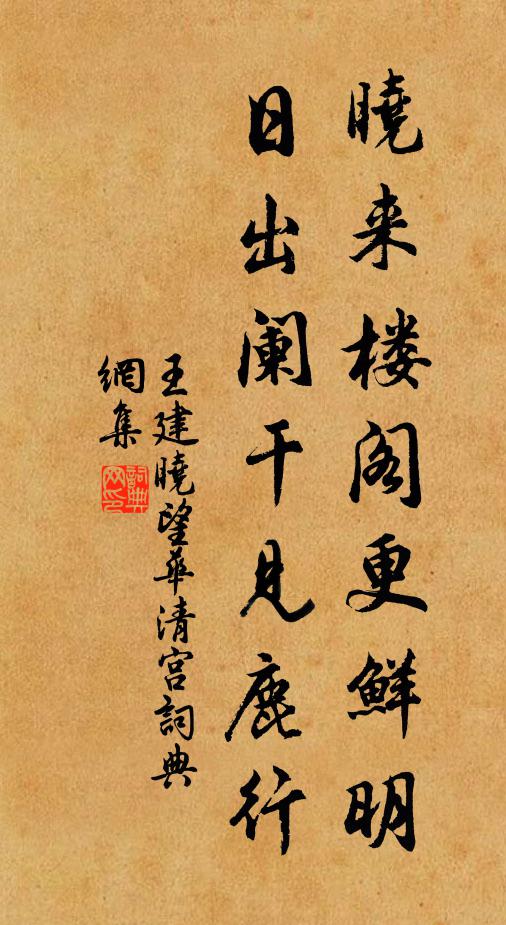 曉来楼阁更鮮明
日出阑干見鹿行
王建曉望華清宫詞典
網集
詞典网印